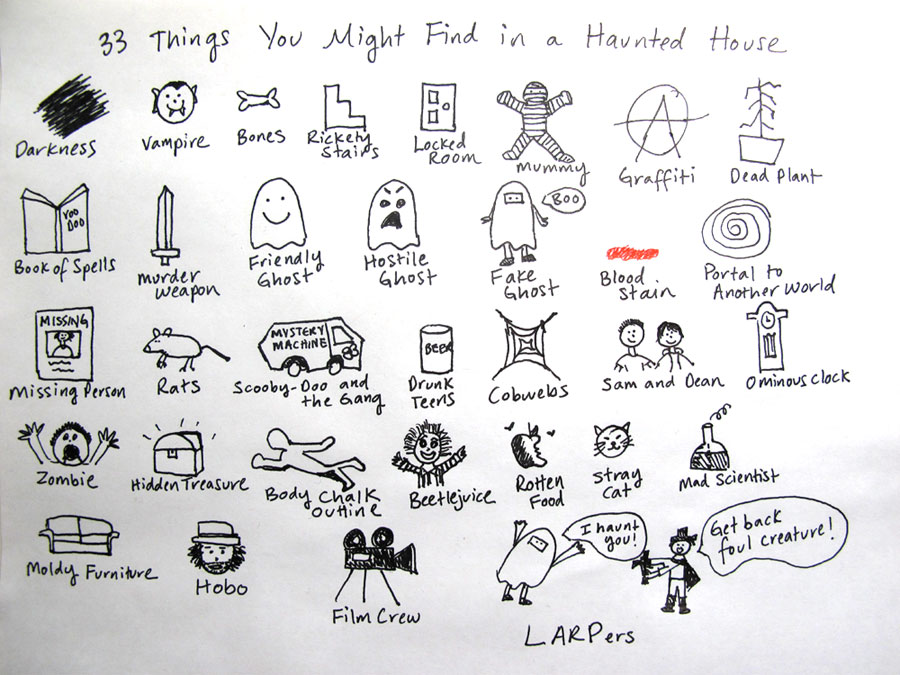 33 Things You Might Find in a Haunted House
Darkness
Vampire
Bones
Rickety
Stairs
Locked
Room
Mummy
Graffiti
Dead Plant
VOO
DOO
Book of Spells
Murder
Weapon
Friendly
Ghost
Hostile
Ghost
BOO
Fake
Ghost
Blood
Stain
Portal to
Another World
MISSING
Missing Person
Rats
MYSTERY
MACHINE
Scooby-Doo and
the Gang
BEER
Drunk
Teens
Cobwebs
Sam and Dean
Ominous Clock
Zombie
Hidden Treasure
Body Chalk
Outline
Beetlejuice
Rotten
Food
Stray
Cat
Mad Scientist
Moldy Furniture
Hobo
Film Crew
I haunt
you!
Get back
foul creature!
LARPers